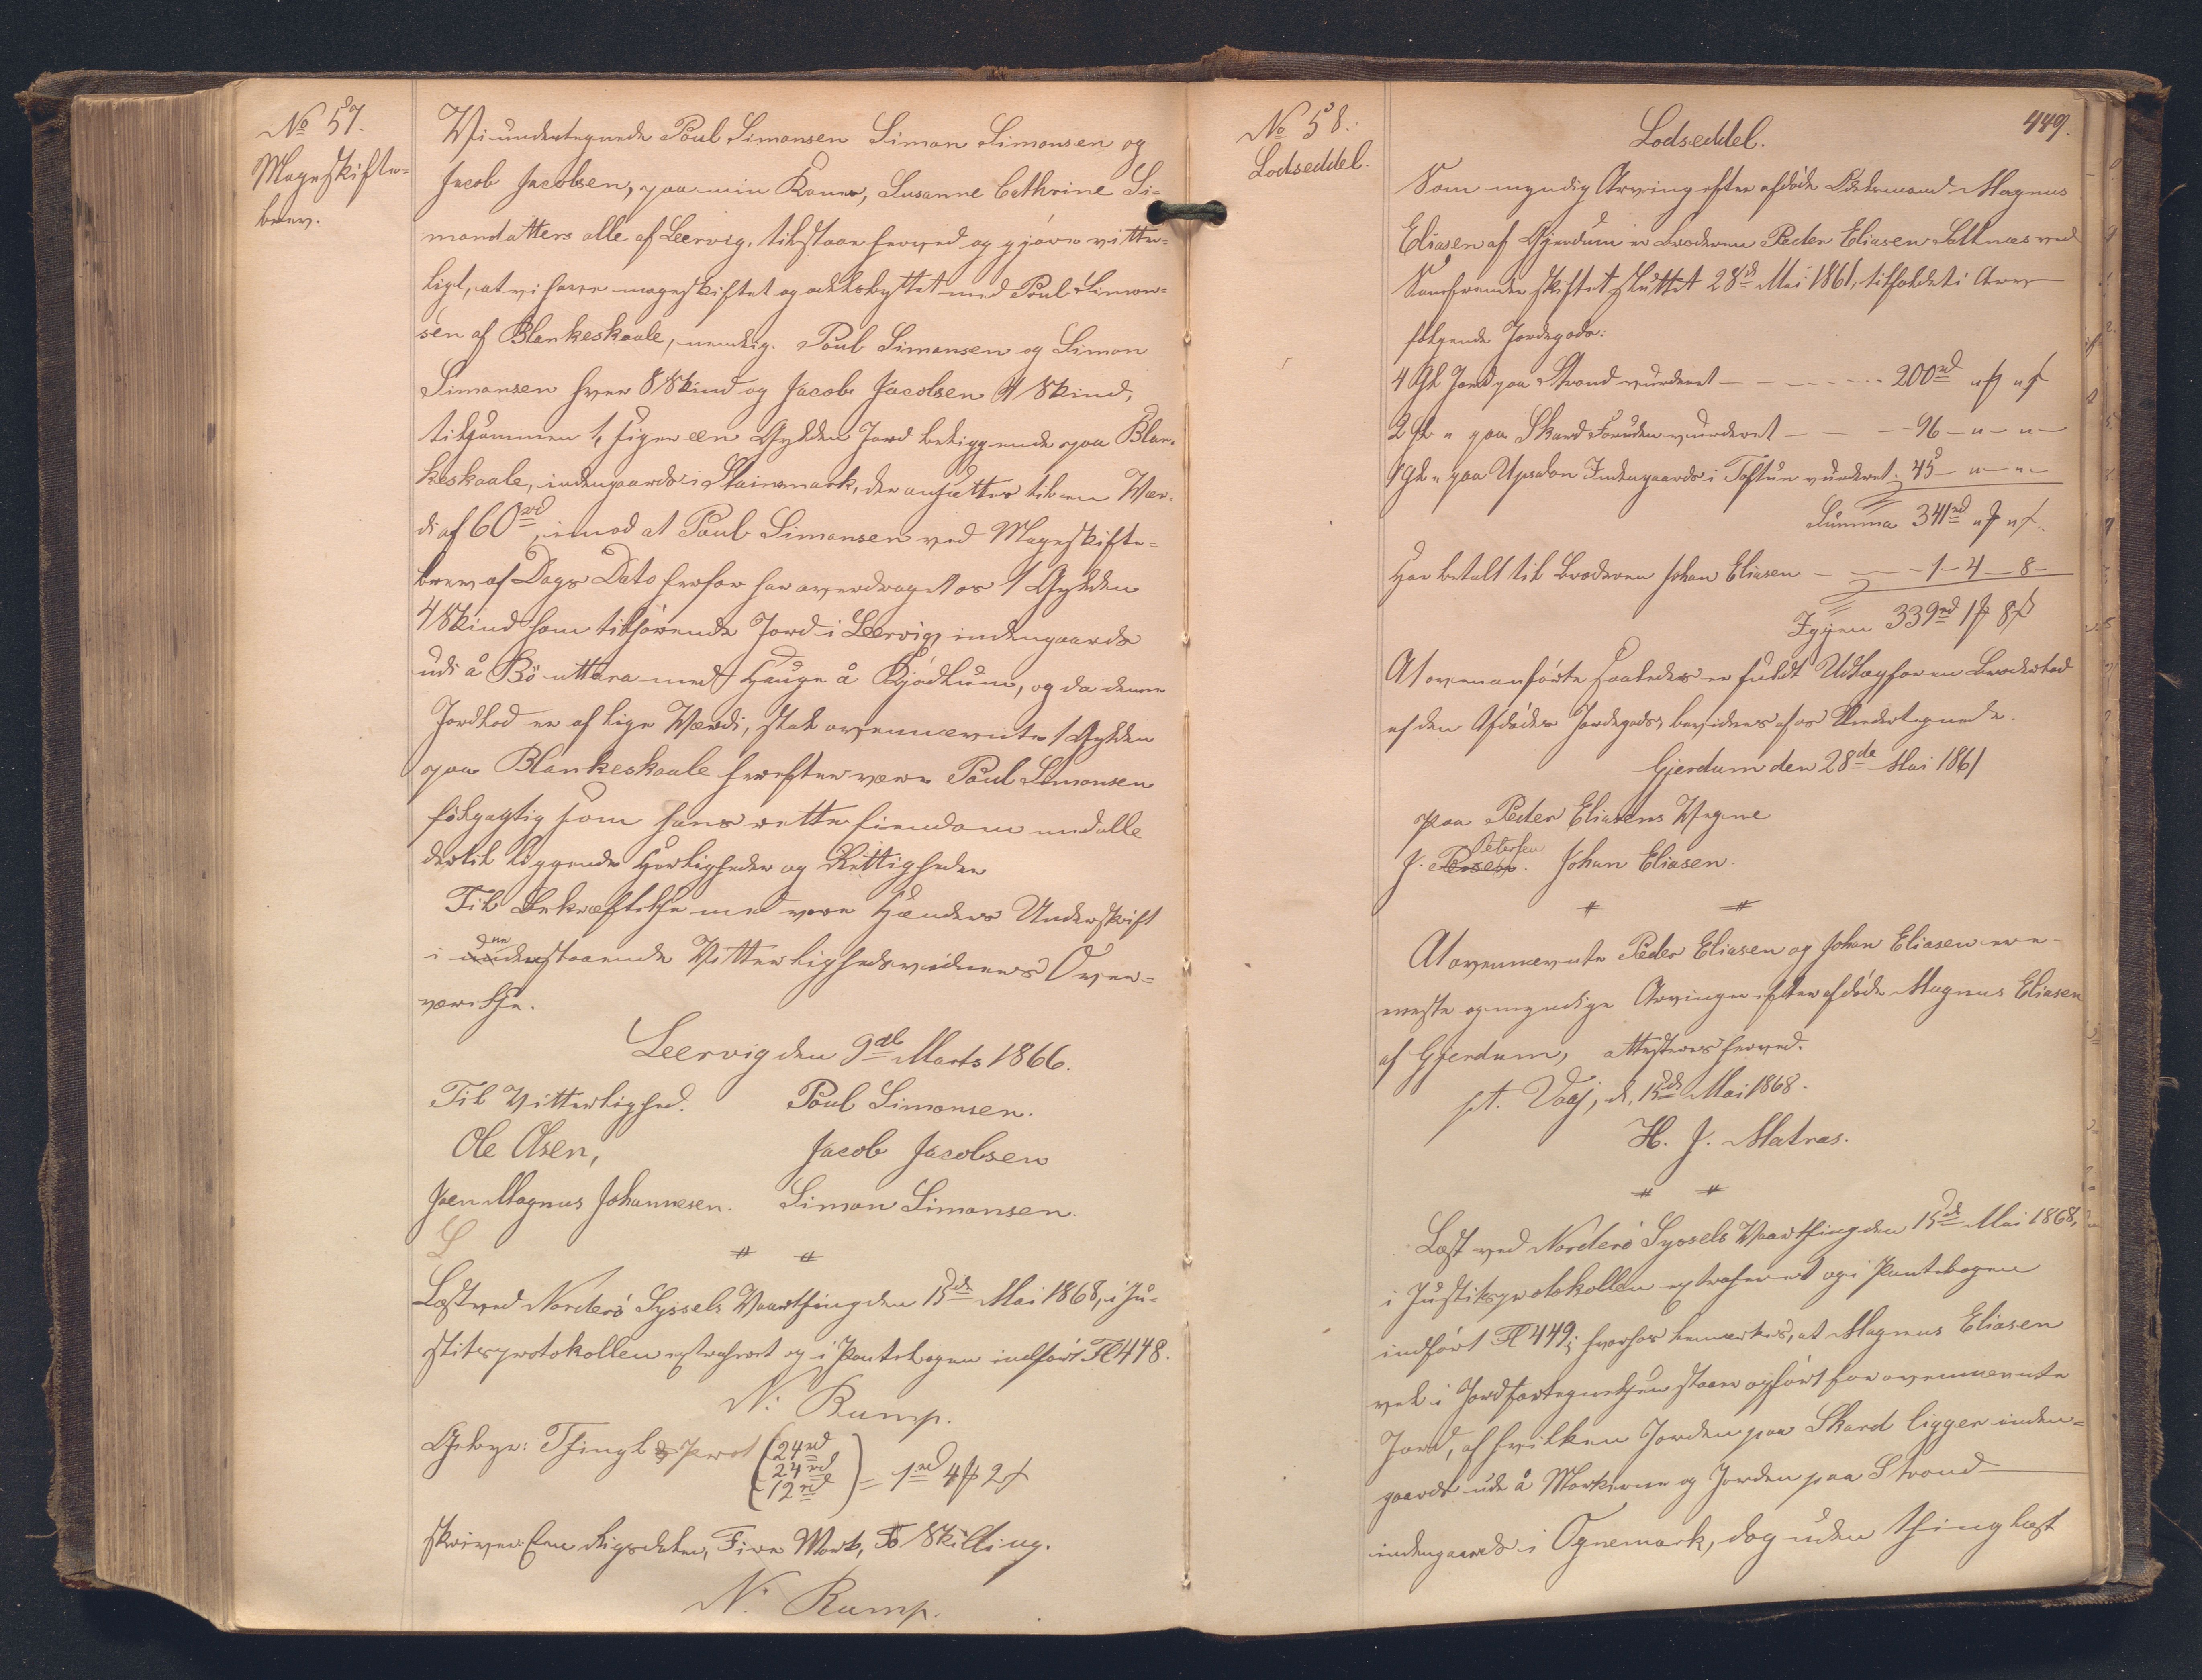 No 57.
Mageskifte-
brev.
Vi undertegnede Poul Simonsen Simon Simonsen og
Jacob Jacobsen, paa min Kones, Susanne Cathrine Si-
monsdatters alle af Leervig, tilstaar herved og gjøre vitter-
ligt, at vi have mageskiftet og med Poul Simon-
sen af Blankeskaale, nemlig. Poul Simonsen og Simon
Simonsen hver 8 Skind og Jacob Jacobsen 4 Skind,
tilsammen 1, siger een Gylden Jord beliggende paa Blan-
keskaale, indengaards i Stainsmark, der ansættes til en Vær-
di af 60 rd, imod at Poul Simonsen ved Mageskifte-
brev af Dags Dato herfor har overdraget os 1 Gylden
4 Skind ham tilhørende Jord i Leervig, indengaards
udi å Bö uttara med Hauge å Kjódhum, og da denne
Jordlod er af lige Værdi, skal ovennævnte 1 Gylden
paa Blankeskaale herefter være Poul Simonsen
følgagtig som hans rette Eiendom med alle
dertil liggende Herligheder og Rettigheder
Til Bekræftelse med vore Hænders Underskrift
i nedenstaaende Vitterlighedsvidners Over-
værelse.
Leervig den 9de Marts 1866.
Til Vitterlighed. Poul Simonsen.
Ole Olsen, Jacob Jacobsen
Joen Magnus Johannesen. Simon Simonsen.
Læst ved Norderö Syssels Vaarthing den 15de Mai 1868, i Ju-
stitsprotokollen extraheret og i Pantebogen indført Fl 448.
N. Rump.
Gebyr: Thingl & Prot (24 rd
24 rd
12 rd) = 1 rd 4 # 2 ß
skriver Een Rigsdaler, Fire Mark, To Skilling.
N. Rump.
No 58.
Lodseddel.
449.
Lodseddel.
Som myndig Arving efter afdøde Magnus
Eliasen af Gjerdum er Broderen Peder Eliasen Saltnæs ved
Samfrænde Skiftet sluttet 28de Mai 1861, tilfaldet i Arv
følgende Jordegods:
4 Gl Jord paa Strond vurderet - - - - - 200 rd " # " ß
2 Gl " paa Skard Foruden vurderet - - - 96 - " - " -
1 Gl " paa Upsalon Indengaards i Toftun vurderet 45 - " - " -
Summa 341 rd " # " ß
Har betalt til Broderen Johan Eliasen - - - 1 - 4 - 8 -
Igjen 339 rd 1 # 8 ß
At ovenanførte saaledes er fuldt Udlæg for en Broderlod
af den Afdødes Jordegods, bevidnes af os Undertegnede.
Gjerdum den 28de Mai 1861
paa Peder Eliasens Vegne
J. Petersen. Johan Eliasen.
At ovennævnte Peder Eliasen og Johan Eliasen ere
eneste og myndige Arvinger efter afdøde Magnus Eliasen
af Gjerdum, attesteres herved.
pt. Vaaj, d. 15de Mai 1868.
H. J. Matras.
Læst ved Norderö Syssels Vaarthing den 15de Mai 1868,
i Justitsprotokollen extraheret og i Pantebogen
indført Fl 449; hvorhos bemærkes, at Magnus Eliasen
vel i Jordfortegnelsen staar opført for ovennævnte
Jord, af hvilken Jorden paa Skard ligger inden-
gaards ude å Morkenne og Jorden paa Strond
indengaards i Ognemark, dog uden thinglæst